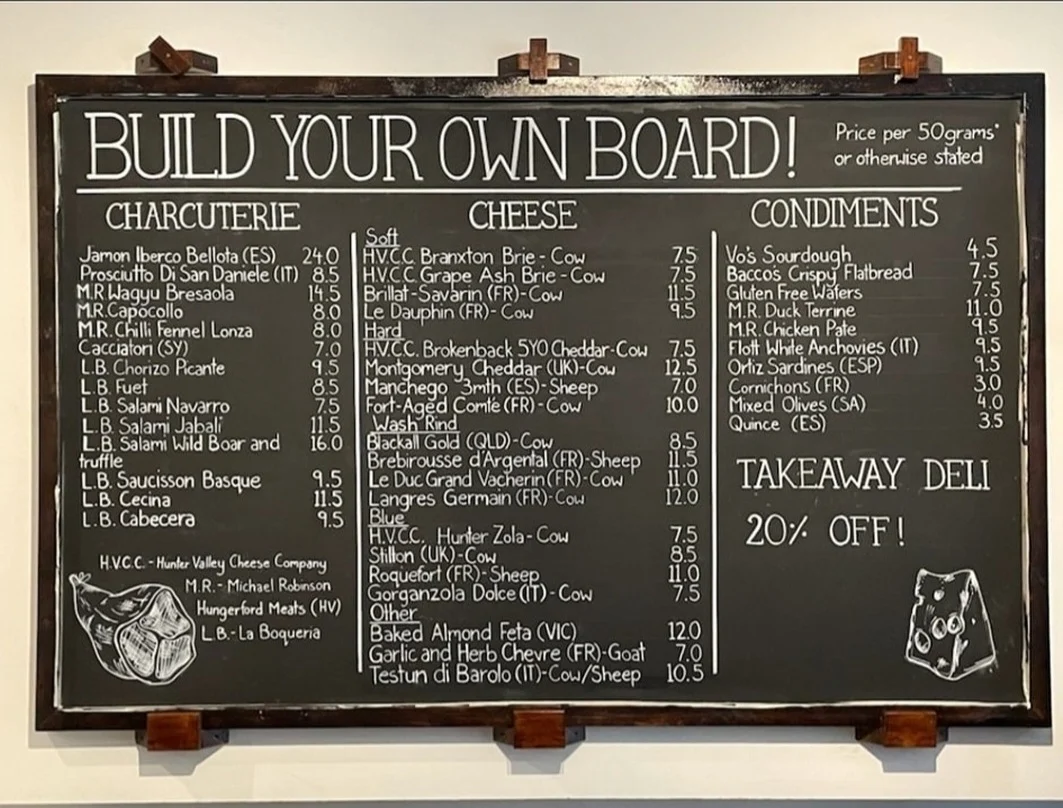 BUILD YOUR OWN BOARD!
Price per 50grams*
or otherwise stated
CHARCUTERIE
Jamon Iberco Bellota (ES) 24.0
Prosciutto Di San Daniele (IT) 8.5
M.R Wagyu Bresaola 14.5
M.R.Capocollo 8.0
M.R.Chilli Fennel Lonza 8.0
Cacciatori (SY) 7.0
L.B. Chorizo Picante 9.5
L.B. Fuet 8.5
L.B. Salami Navarro 7.5
L.B. Salami Jabali 11.5
L.B. Salami Wild Boar and 16.0
truffle
L.B. Saucisson Basque 9.5
L.B. Cecina 11.5
L.B. Cabecera 9.5
H.V.C.C. - Hunter Valley Cheese Company
M.R. - Michael Robinson
Hungerford Meats (HV)
L.B.-La Boqueria
CHEESE
Soft
H.V.C.C. Branxton Brie - Cow 7.5
H.V.C.C. Grape Ash Brie - Cow 7.5
Brillat-Savarin (FR)-Cow 11.5
Le Dauphin (FR)- Cow 9.5
Hard
H.V.C.C. Brokenback 5YO Cheddar-Cow 7.5
Montgomery Cheddar (UK)-Cow 12.5
Manchego 3mth (ES)-Sheep 7.0
Fort-Aged Comté (FR)-Cow 10.0
Wash Rind
Blackall Gold (QLD)-Cow 8.5
Brebirousse d'Argental (FR)-Sheep 11.5
Le Duc Grand Vacherin (FR)-Cow 11.0
Langres Germain (FR)-Cow 12.0
Blue
H.V.C.C. Hunter Zola- Cow 7.5
Stilton (UK)-Cow 8.5
Roquefort (FR)-Sheep 11.0
Gorganzola Dolce (IT)-Cow 7.5
Other
Baked Almond Feta (VIC) 12.0
Garlic and Herb Chevre (FR)-Goat 7.0
Testun di Barolo (IT)-Cow/Sheep 10.5
CONDIMENTS
Vo's Sourdough 4.5
Bacco's Crispy Flatbread 7.5
Gluten Free Wafers 7.5
M.R. Duck Terrine 11.0
M.R. Chicken Pate 9.5
Flott White Anchovies (IT) 9.5
Ortiz Sardines (ESP) 9.5
Cornichons (FR) 3.0
Mixed Olives (SA) 4.0
Quince (ES) 3.5
TAKEAWAY DELI
20% OFF!